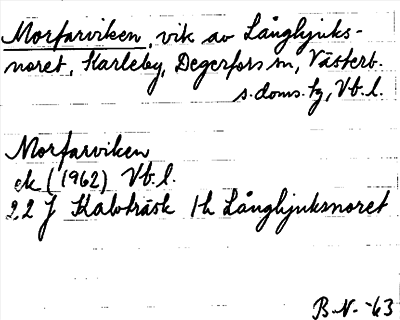 Morfarviken, vik av Långhjuks-
noret, Karleby, Degerfors sn, Västerb.
s. doms. tg, Vb. l.
Morfarviken
ek (1962) Vb. l.
22 J Kalvträsk 1h Långhjuksnoret
B.N. -63